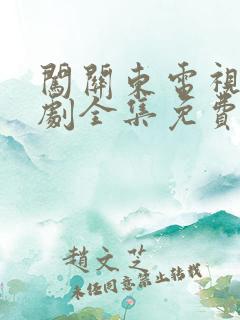 闖關東電視
劇全集免費
趙文芝
未經同意禁止轉載